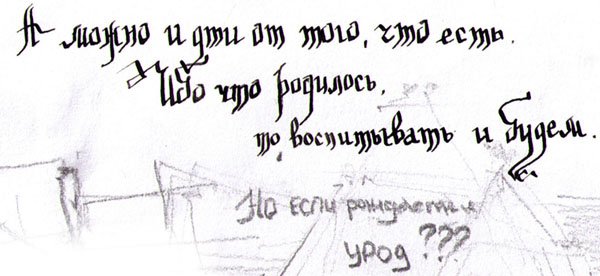 А можно идти от того, что есть.
Ибо что родилось,
то воспитывать и будем.
Но если рождается
урод???